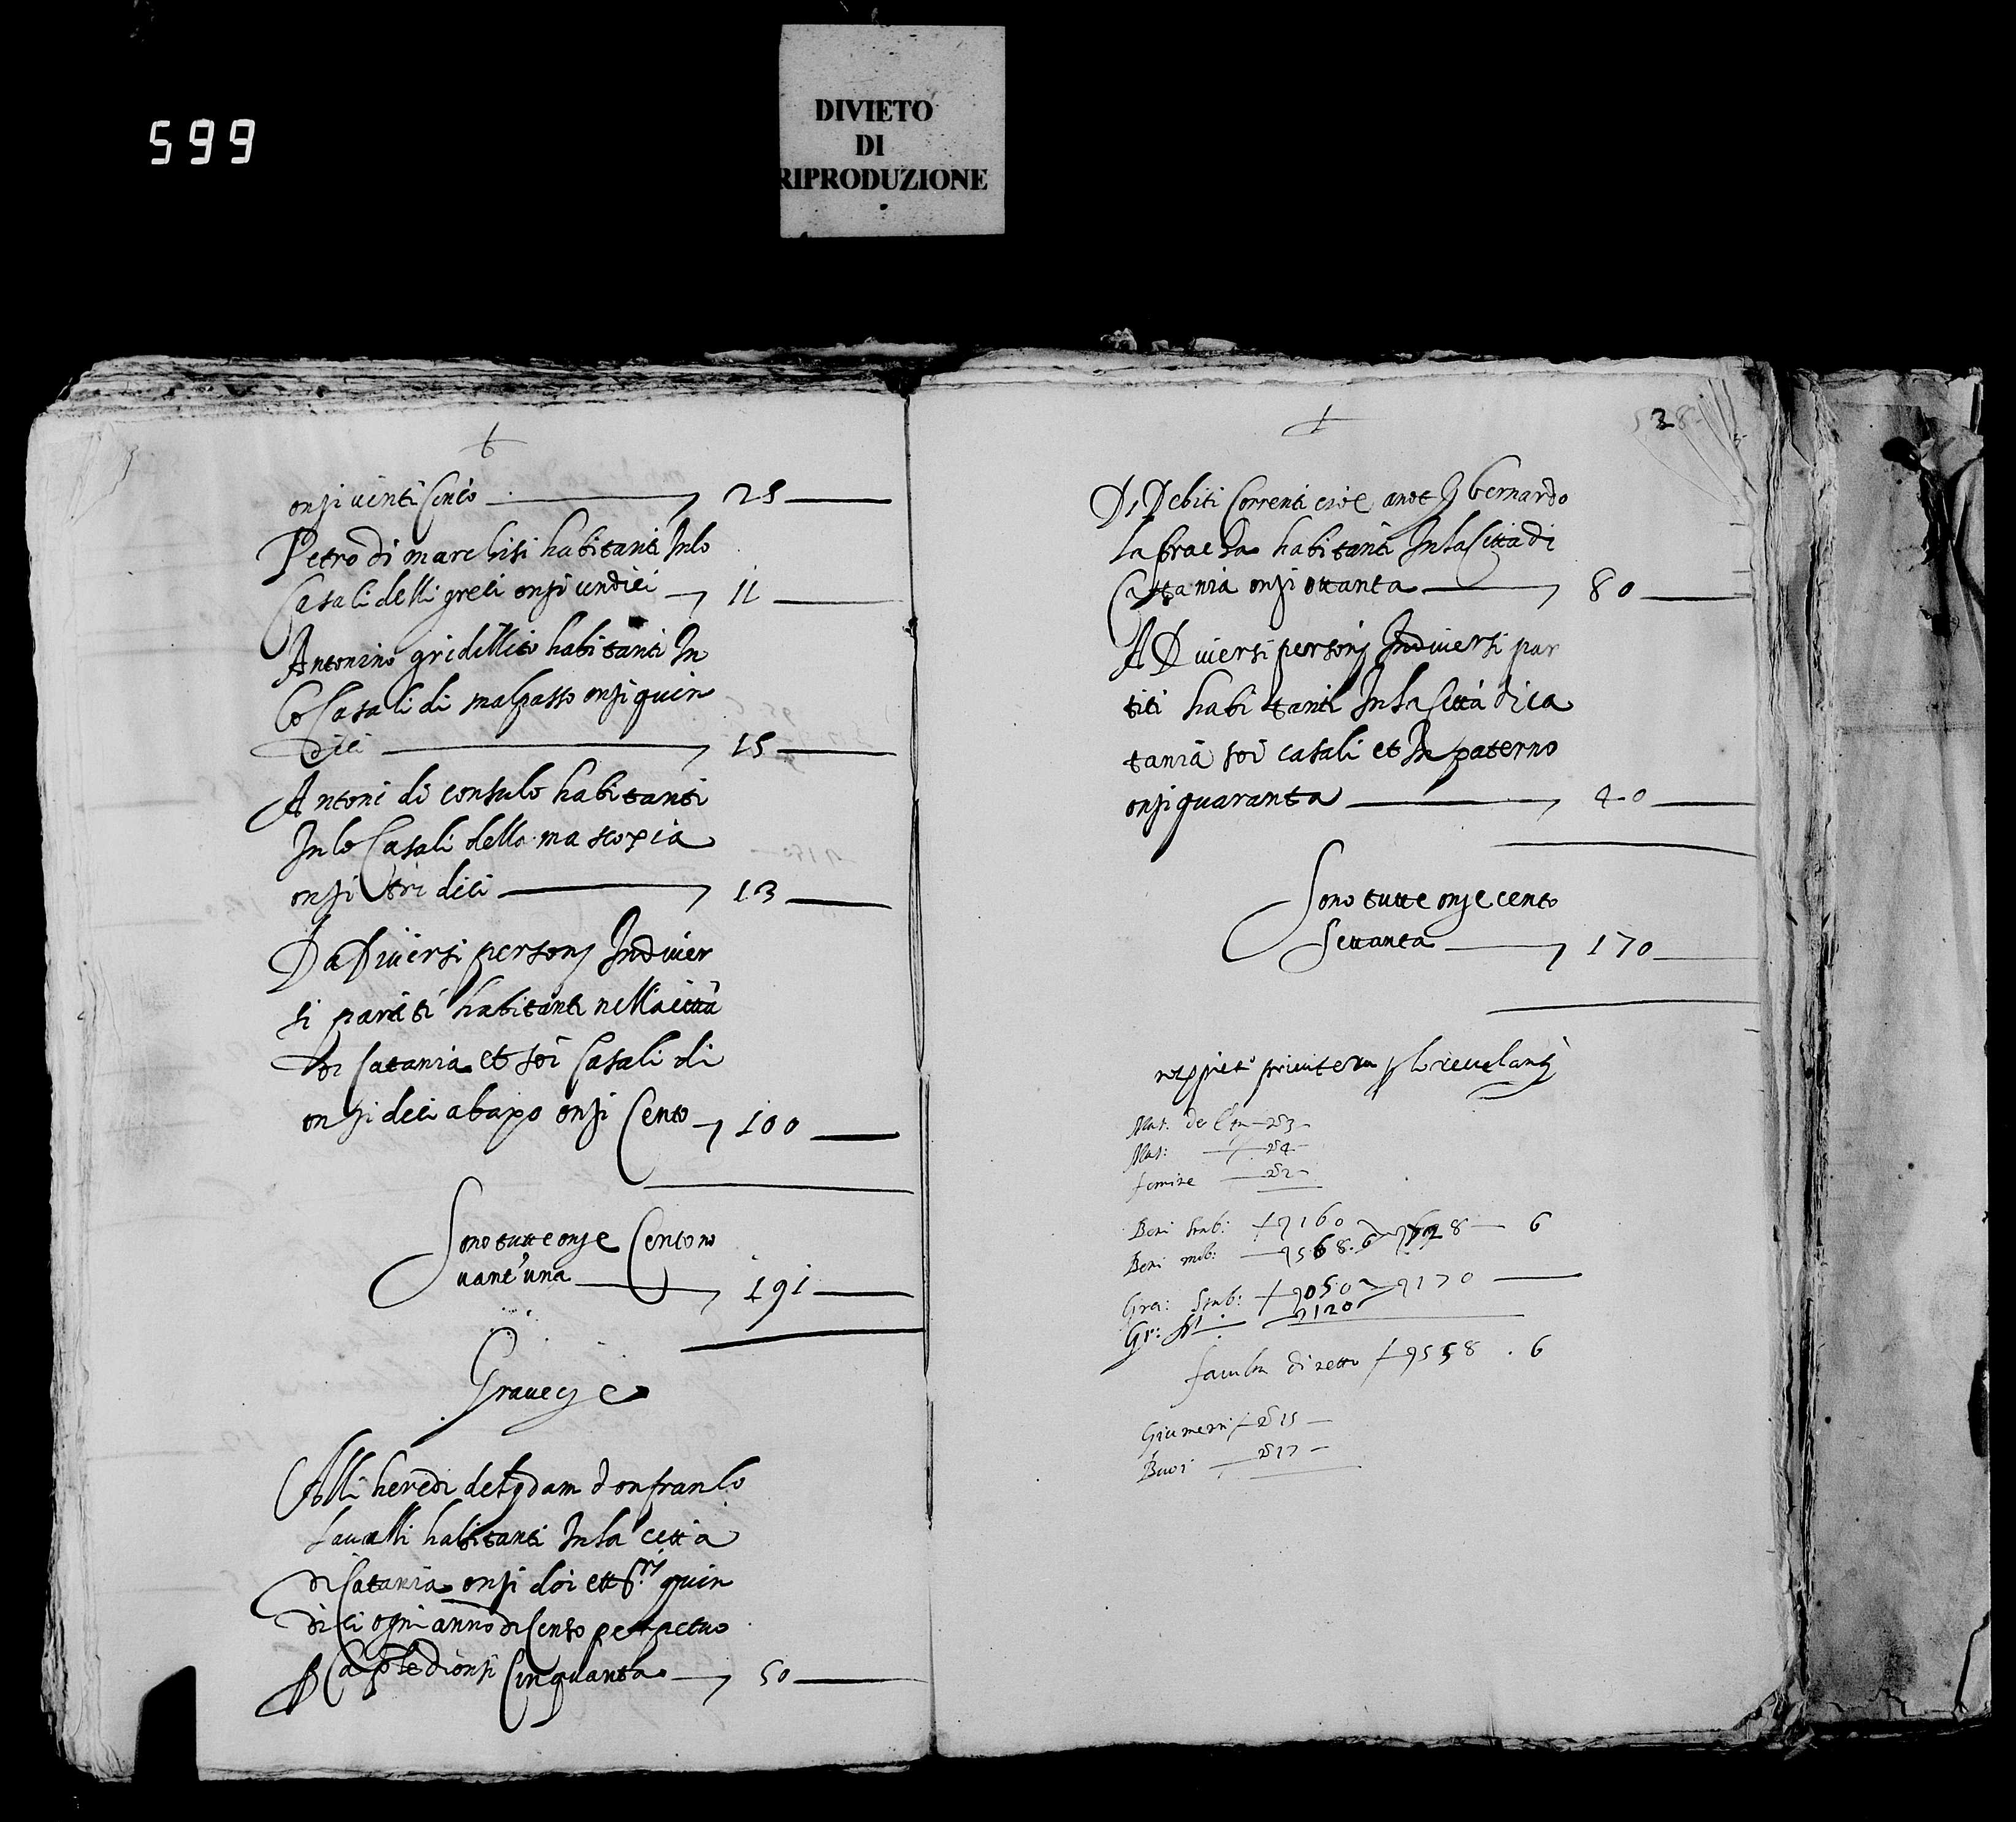 599
DIVIETO
DI
RIPRODUZIONE
onsi uinti Cinco 25
Petro di marchisi habitanti Inlo
Casali delli greci onsi undici 11
Antonino gridillito habitanti In
lo Casali di malpasso onsi quin
dici 15
Antoni di consulo habitanti
Inlo Casali della mascopia
onsi tri dici 13
Da Diuersi persony Indiuer
si partiti habitanti nella città
di Catania et soi Casali di
onsi deci abaxo onsi Cento 100
Sono tutte onse Cento no
uant'una 191
Graueze
Alli heredi del qdam don franco
habitanti Inla città
di Catania onsi doi et trì quin
dici ogni anno di Censo perpetuo
Caple di onsi Cinquanta 50
528
Di Debiti Correnti cioè a not bernardo
la habitanti Inla Città di
Cattania onsi ottanta 80
A Diuersi persony Indiuersi par
titi habitanti Inla Città di Ca
tania soi casali et In paterno
onsi quaranta 40
Sono tutte onse cento
settanta 170
lo reuelanti
Mas: de 3
Mas: 4
femine 2
Beni stab: 160 728 6
Beni mob: 568.6
Gra: stab: 050 170
Gr: 120
facultà di netto 558 . 6
Giumenti 15
Buoi 17